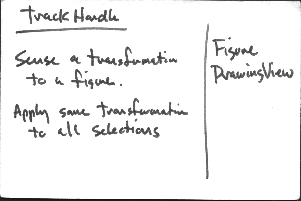 TrackHandle
Sense a transformation
to a figure.
Apply same transformation
to all selections
Figure
DrawingView